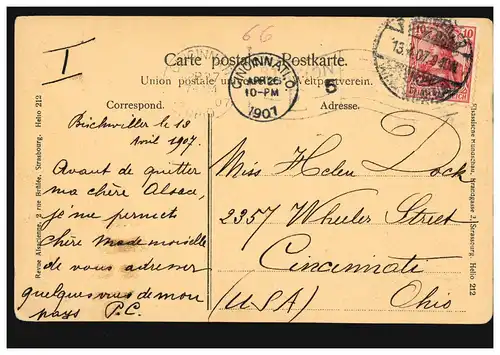 66
T
Carte postale Postkarte.
Union postale Weltpostverein.
CINCINNATI, O.
APR 26
10-PM
1907
5
13.4.07
10
Correspond. Adresse.
Revue Alsacienne, 2 rue Brûlée, Strasbourg. Helio 212
Bischwiller le 13
Avril 1907.
Avant de quitter
ma chère Alsace,
je me permets
chère Mademoiselle
de vous adresser
quelques vues de mon
pays P.C.
Miss Helen Dock
2357 Wheeler Street
Cincinnati
(USA) Ohio
Rundschau, Brandgasse 2, Strassburg. Helio 212